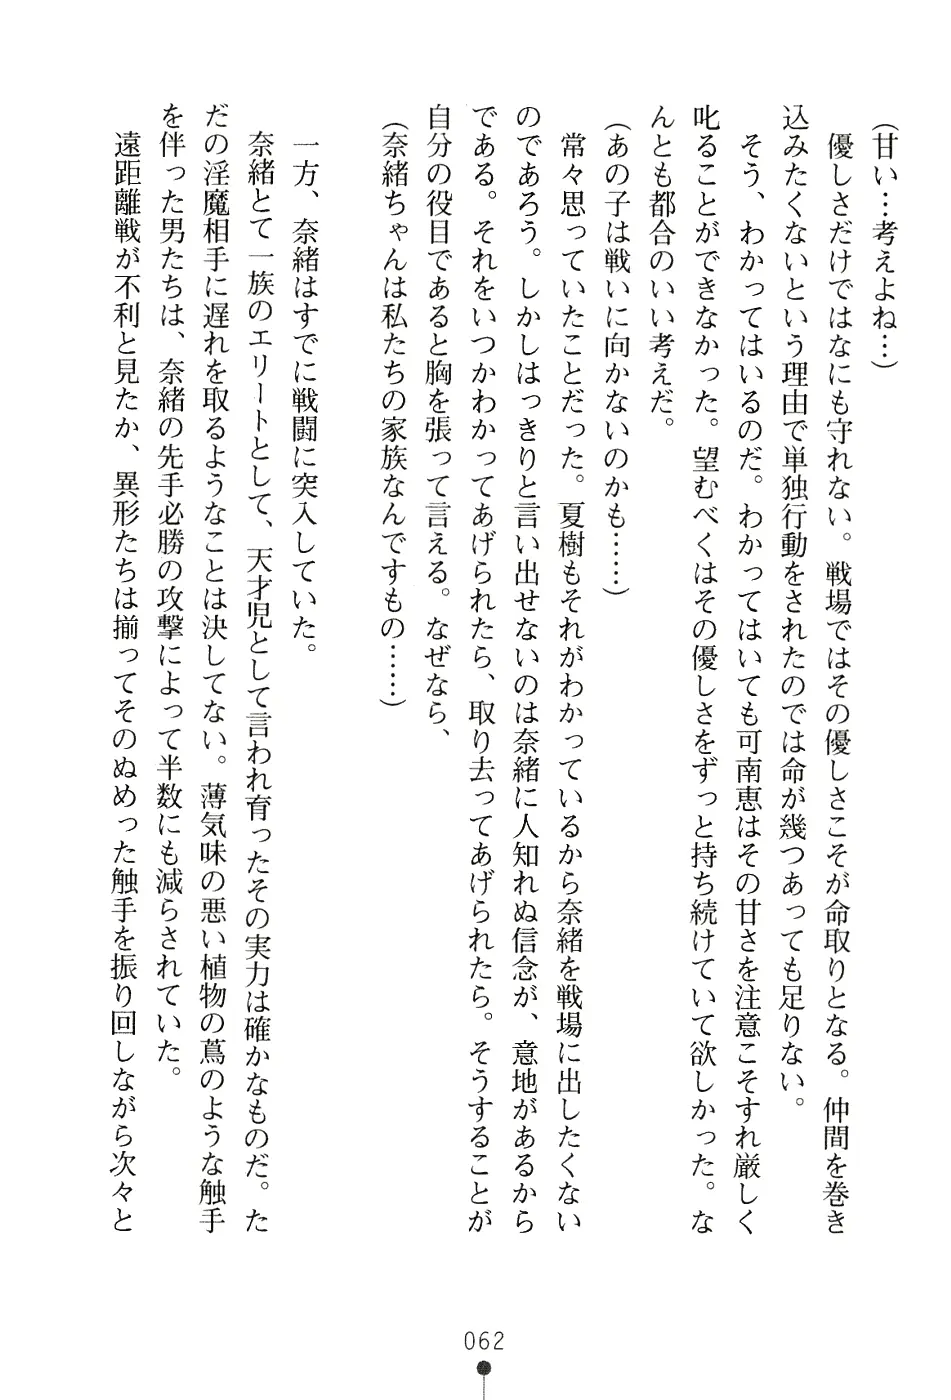 （甘い…考えよね…）
　優しさだけではなにも守れない。戦場ではその優しさこそが命取りとなる。仲間を巻き
込みたくないという理由で単独行動をされたのでは命が幾つあっても足りない。
　そう、わかってはいるのだ。わかってはいても可南恵はその甘さを注意こそすれ厳しく
叱ることができなかった。望むべくはその優しさをずっと持ち続けていて欲しかった。な
んとも都合のいい考えだ。
（あの子は戦いに向かないのかも……）
　常々思っていたことだった。夏樹もそれがわかっているから奈緒を戦場に出したくない
のであろう。しかしはっきりと言い出せないのは奈緒に人知れぬ信念が、意地があるから
である。それをいつかわかってあげられたら、取り去ってあげられたら。そうすることが
自分の役目であると胸を張って言える。なぜなら、
（奈緒ちゃんは私たちの家族なんですもの……）
　一方、奈緒はすでに戦闘に突入していた。
　奈緒とて一族のエリートとして、天才児として言われ育ったその実力は確かなものだ。た
だの淫魔相手に遅れを取るようなことは決してない。薄気味の悪い植物の蔦のような触手
を伴った男たちは、奈緒の先手必勝の攻撃によって半数にも減らされていた。
　遠距離戦が不利と見たか、異形たちは揃ってそのぬめった触手を振り回しながら次々と
062